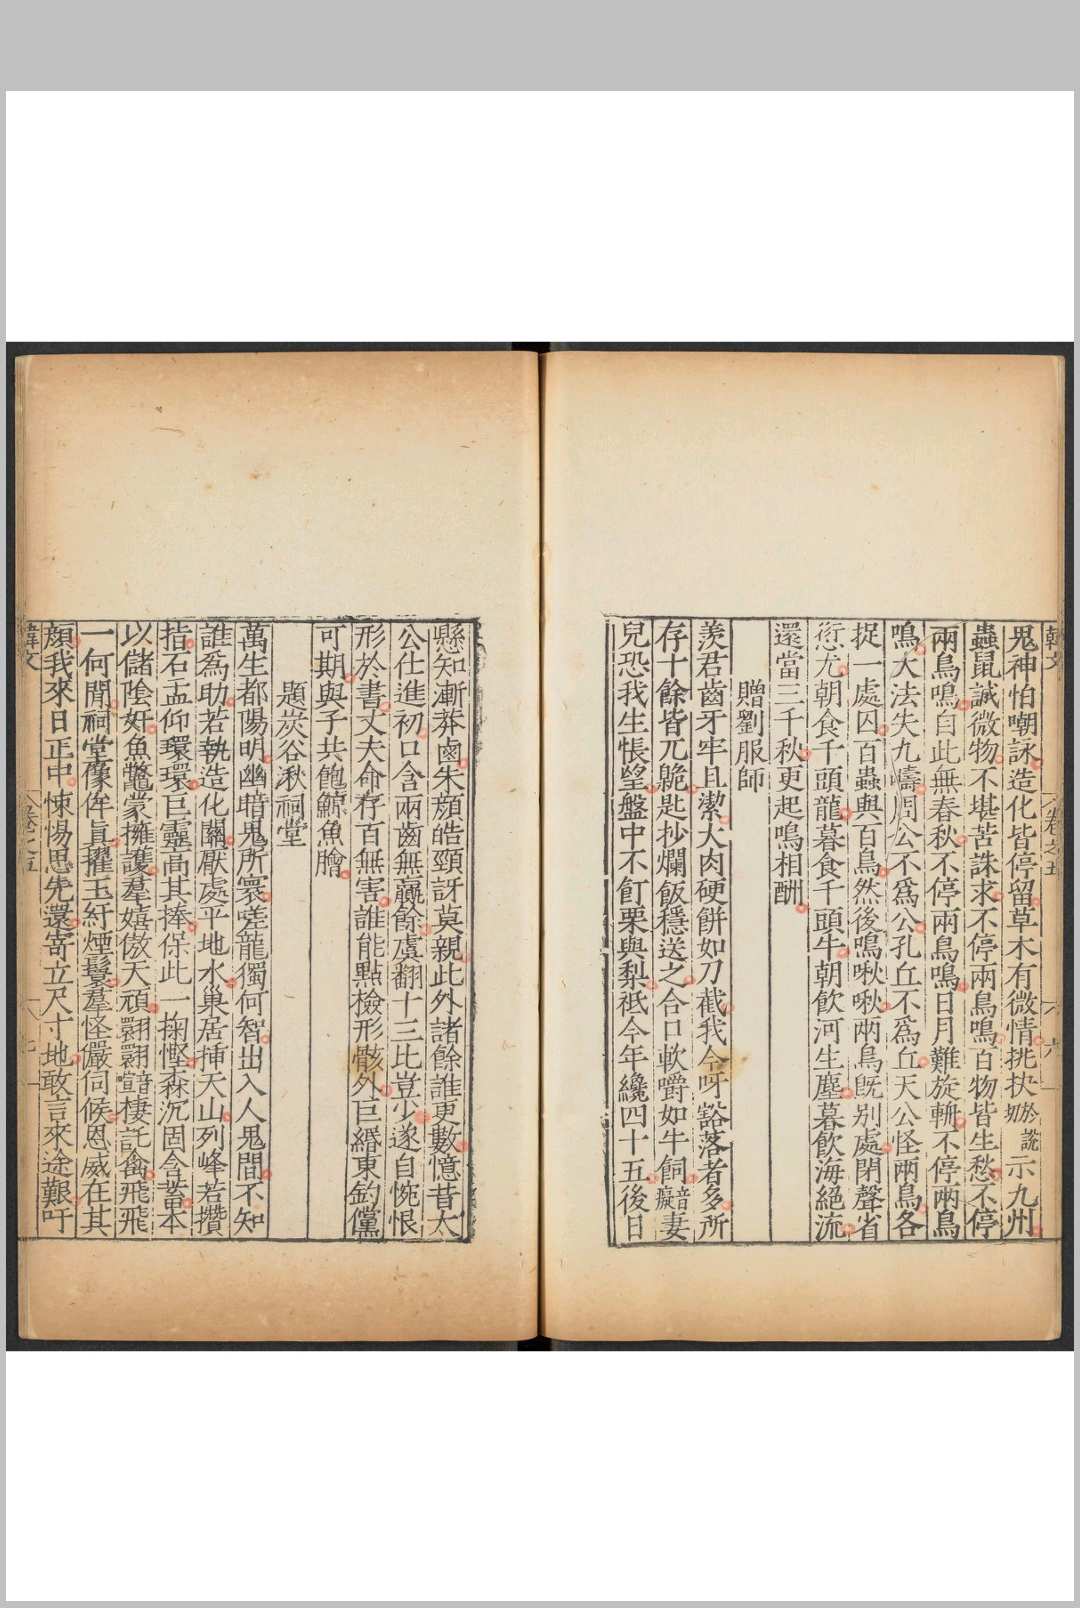 韓文 卷之五 六
鬼神怕嘲詠造化皆停留草木有微情挑抉於說切示九州
蟲鼠誠微物不堪苦誅求不停兩鳥鳴百物皆生愁不停
兩鳥鳴自此無春秋不停兩鳥鳴日月難旋輈不停兩鳥
鳴大法失九疇周公不爲公孔丘不爲丘天公怪兩鳥各
捉一處囚百蟲與百鳥然後鳴啾啾兩鳥旣別處閉聲省
愆尤朝食千頭龍暮食千頭牛朝飲河生塵暮飲海絕流
還當三千秋更起鳴相酬
贈劉服師
羨君齒牙牢且潔大肉硬餅如刀截我今呀豁落者多所
存十餘皆兀臲匙抄爛飯穩送之合口軟嚼如牛飼音癡妻
兒恐我生悵望盤中不飣栗與梨祗今年纔四十五後日
懸知漸莽鹵朱顏皓頸訝莫親此外諸餘誰更數憶昔太
公仕進初口含兩齒無羸餘虞翻十三比豈少遂自惋恨
形於書丈夫命存百無害誰能點檢形骸外巨緡東釣儻
可期與子共飽鯨魚膾
題炭谷湫祠堂
萬生都陽明幽暗鬼所寰嗟龍獨何智出入人鬼間不知
誰爲助若執造化關厭處平地水巢居揷天山列峰若攢
指石盂仰環環巨靈高其捧保此一掬慳森沉固含蓄本
以儲陰奸魚鼈蒙擁護羣嬉傲天頑翾翾音暄棲託禽飛飛
一何閒祠堂像侔眞擢玉紆煙鬟羣怪儼伺候恩威在其
顏我來日正中悚惕思先還寄立尺寸地敢言來途艱吁
韓文 卷之五 七